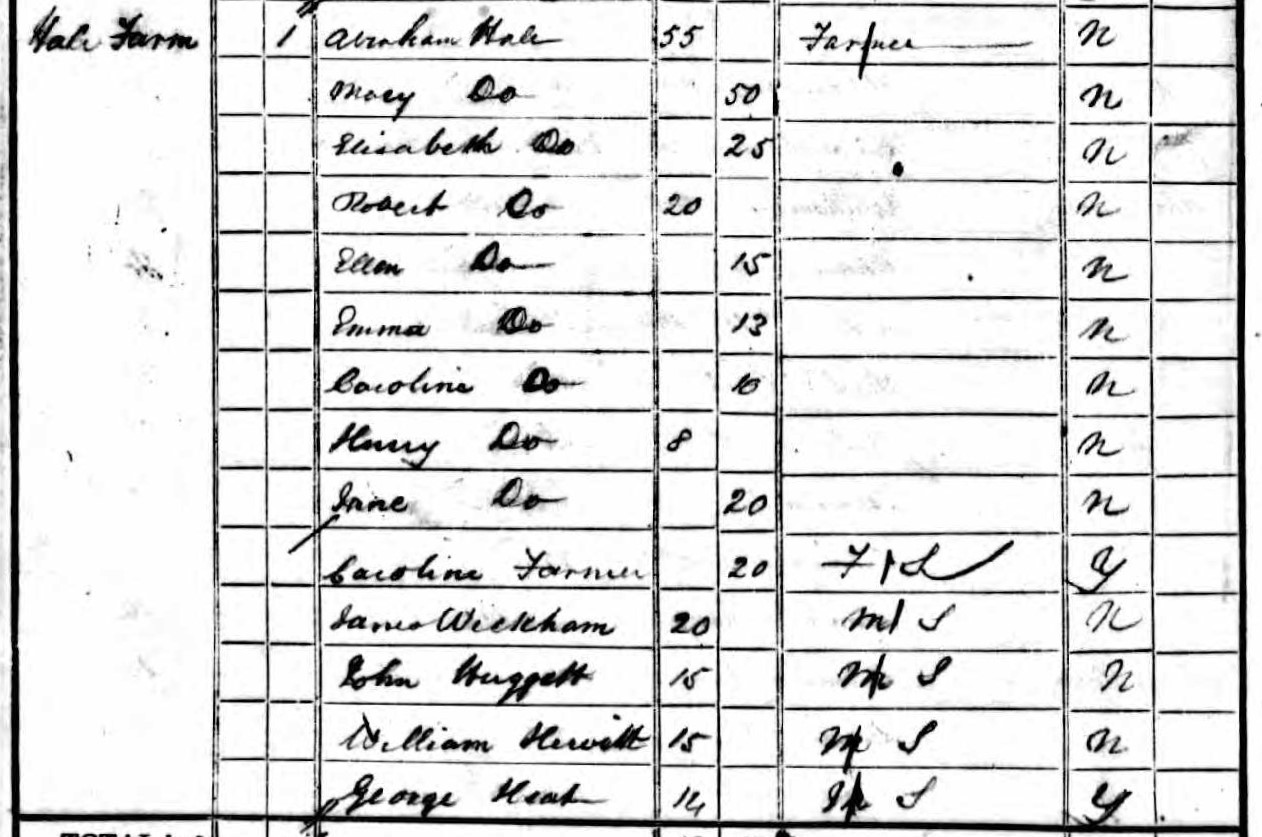 Hale Farm 1 Abraham Hale 55 Farmer N
Mary Do 50 N
Elisabeth Do 25 N
Robert Do 20 N
Ellen Do 15 N
Emma Do 13 N
Caroline Do 10 N
Henry Do 8 N
Jane Do 20 N
Caroline Farmer 20 F S Y
James Wickham 20 M S N
John Huggett 15 M S N
William Hewitt 15 M S N
George 14 S Y